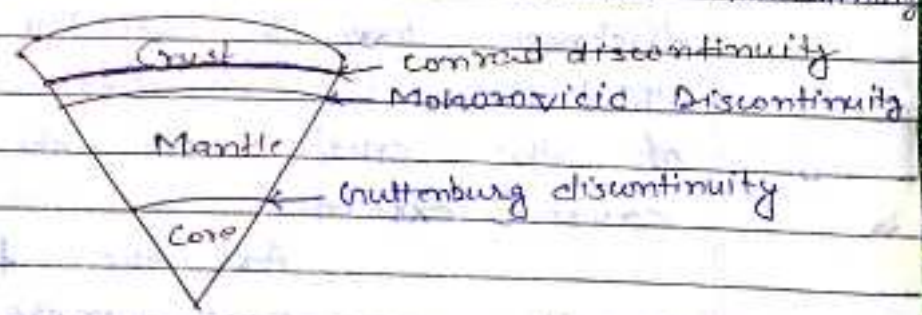 Crust
conrad discontinuity
Mohorovicic Discontinuity
Mantle
Guttenburg discontinuity
Core